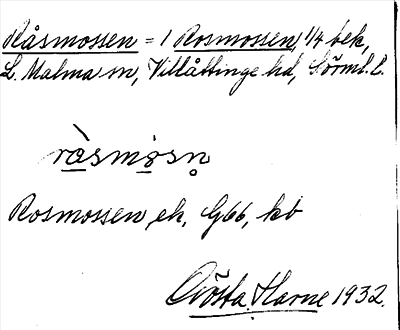 Råsmossen = 1 Rosmossen, 1/4 bek,
L. Malma sn, Villåttinge hd, Sörml. l.
ròsmòsn̥
Rosmossen, ek, G66, kb
Gösta Harne 1932.